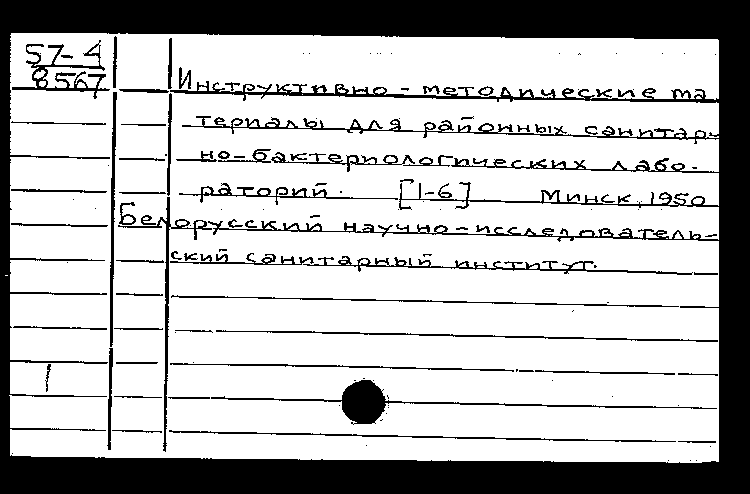 57-4
8567
Инструктивно-методические ма
териалы для районных санитар-
но-бактериологических лабо-
раторий. [1-6] Минск, 1950
Белорусский научно-исследователь-
ский санитарный институт.
1